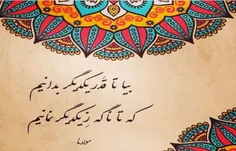 بیا تا قدر یکدیگر بدانیم
که تا ناگه ز یکدیگر نمانیم
مولانا